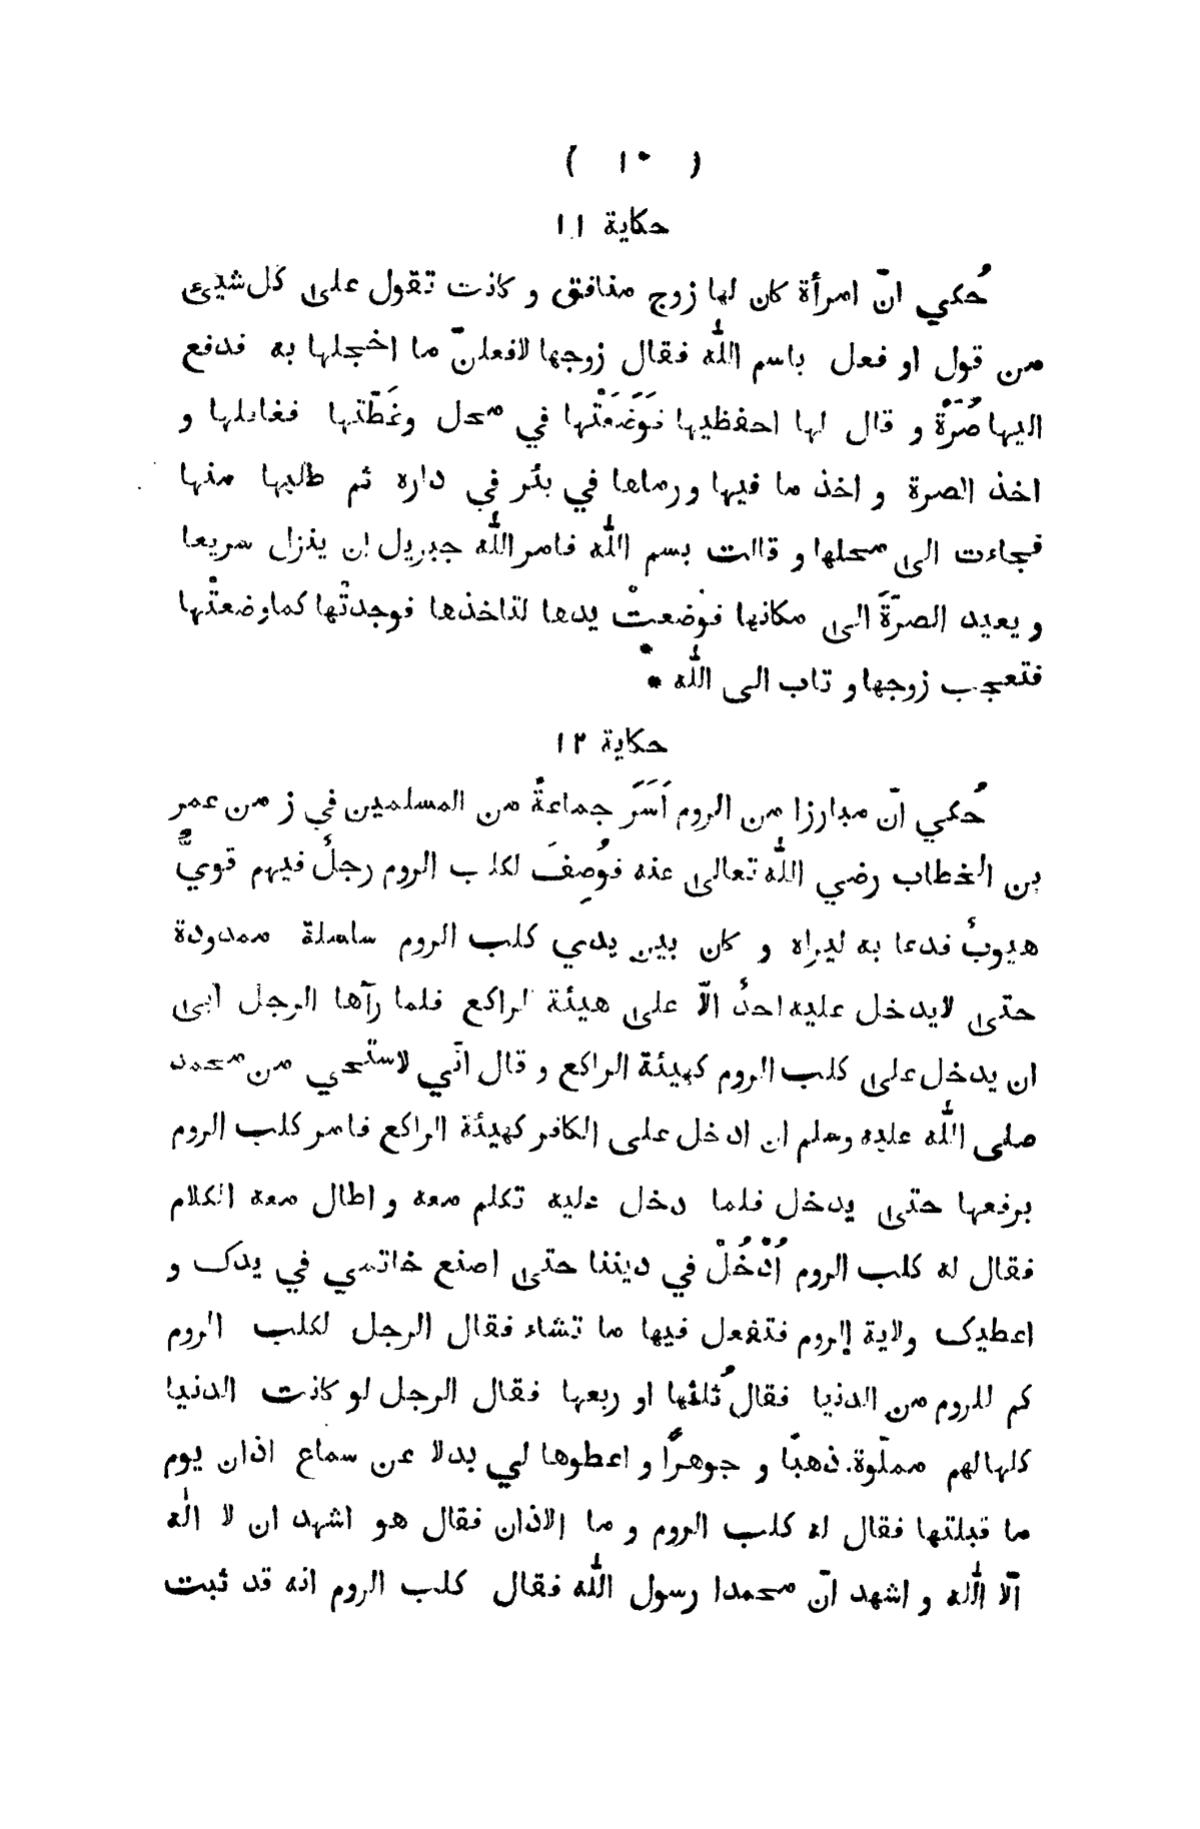 ( ١٠ )
حكاية ١١
حُكي انّ امرأة كان لها زوج منافق و كانت تقول على كل شيئ
من قول او فعل باسم الله فقال زوجها لافعلنّ ما اخجلها به فدفع
اليها صُرّةً و قال لها احفظيها فَوَضَعَتْها في محل وغَطّتها فغافلها و
اخذ الصرة و اخذ ما فيها و رماها في بئر في داره ثم طلبها منها
فجاءت الى محلها و قالت بسم الله فامر الله جبريل ان ينزل سريعا
و يعيد الصرّةَ الى مكانها فوضعتْ يدها لتاخذها فوجدتْها كما وضعتْها
فتعجب زوجها و تاب الى الله *
حكاية ١٢
حُكي انّ مبارزا من الروم اَسَرَ جماعةً من المسلمين في زمن عمر
بن الخطاب رضي الله تعالى عنه فوُصِفَ لكلب الروم رجلٌ فيهم قويٌّ
هيوبٌ فدعا به ليراه و كان بين يدي كلب الروم سلسلة ممدودة
حتى لايدخل عليه احدٌ الّا على هيئة الراكع فلما رآها الرجل ابى
ان يدخل على كلب الروم كهيئة الراكع و قال انّي لاستحي من محمد
صلى الله عليه وسلم ان ادخل على الكافر كهيئة الراكع فامر كلب الروم
برفعها حتى يدخل فلما دخل عليه تكلم معه و اطال معه الكلام
فقال له كلب الروم اُدْخُلْ في ديننا حتى اصنع خاتمي في يدك و
اعطيك ولاية الروم فتفعل فيها ما تشاء فقال الرجل لكلب الروم
كم للروم من الدنيا فقال ثُلثها او ربعها فقال الرجل لو كانت الدنيا
كلها لهم مملّوة ذهبًا و جوهرًا و اعطوها لي بدلا عن سماع اذان يوم
ما قبلتها فقال له كلب الروم و ما الاذان فقال هو اشهد ان لا اله
الّا الله و اشهد انّ محمدا رسول الله فقال كلب الروم انه قد ثبت